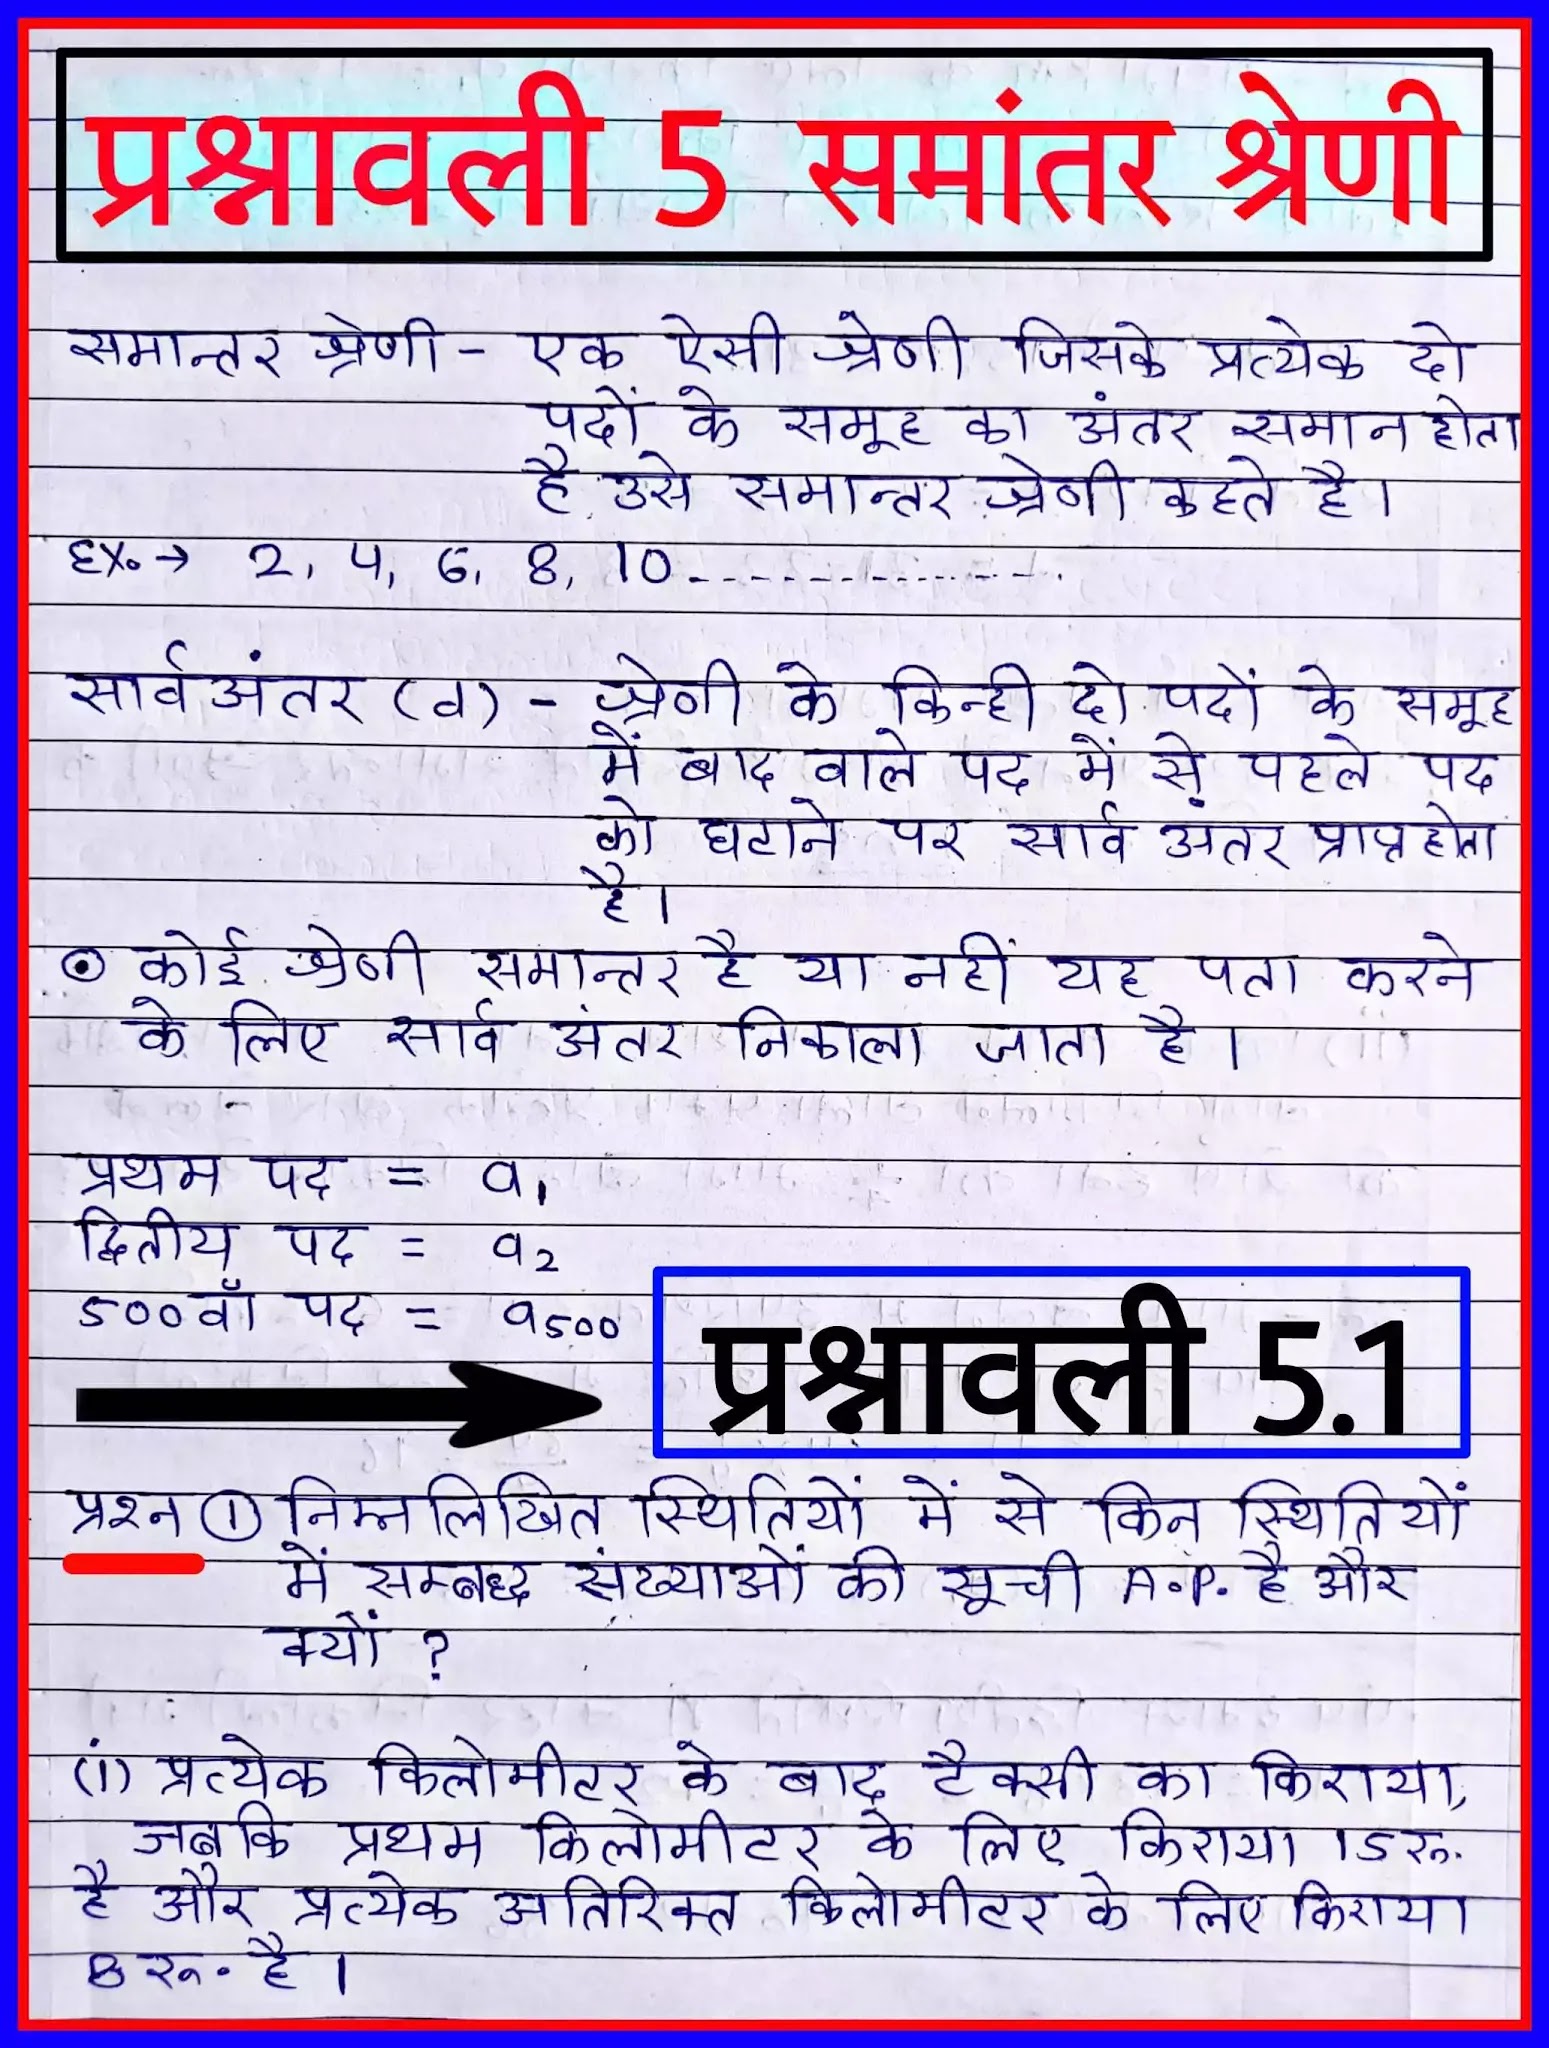 प्रश्नावली 5 समांतर श्रेणी
समान्तर श्रेणी - एक ऐसी श्रेणी जिसके प्रत्येक दो
पदों के समूह का अंतर समान होता
है उसे समान्तर श्रेणी कहते है।
Ex. → 2, 4, 6, 8, 10 - - - - - - - - - - - -
सार्व अंतर (d) - श्रेणी के किन्ही दो पदों के समूह
में बाद वाले पद में से पहले पद
को घटाने पर सार्व अंतर प्राप्त होता
है।
⊙ कोई श्रेणी समान्तर है या नहीं यह पता करने
के लिए सार्व अंतर निकाला जाता है।
प्रथम पद = a₁
द्वितीय पद = a₂
500वाँ पद = a₅₀₀
प्रश्नावली 5.1
प्रश्न ① निम्नलिखित स्थितियों में से किन स्थितियों
में सम्बद्ध संख्याओं की सूची A.P. है और
क्यों ?
(i) प्रत्येक किलोमीटर के बाद टैक्सी का किराया,
जबकि प्रथम किलोमीटर के लिए किराया 15 रू.
है और प्रत्येक अतिरिक्त किलोमीटर के लिए किराया
8 रू. है।